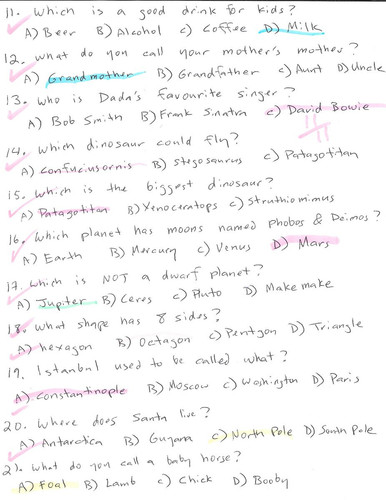 11. Which is a good drink for kids?
A) Beer B) Alcohol C) Coffee D) Milk
12. What do you call your mother's mother?
A) Grandmother B) Grandfather C) Aunt D) Uncle
13. Who is Dada's favourite singer?
A) Bob Smith B) Frank Sinatra C) David Bowie
14. Which dinosaur could fly?
A) Confuciusornis B) Stegosaurus C) Patagotitan
15. Which is the biggest dinosaur?
A) Patagotitan B) Xenoceratops C) Struthiomimus
16. Which planet has moons named Phobos & Deimos?
A) Earth B) Mercury C) Venus D) Mars
17. Which is NOT a dwarf planet?
A) Jupiter B) Ceres C) Pluto D) Makemake
18. What shape has 8 sides?
A) hexagon B) Octagon C) Pentgon D) Triangle
19. Istanbul used to be called what?
A) Constantinople B) Moscow C) Washington D) Paris
20. Where does Santa live?
A) Antarctica B) Guyana C) North Pole D) South Pole
21. What do you call a baby horse?
A) Foal B) Lamb C) Chick D) Booby